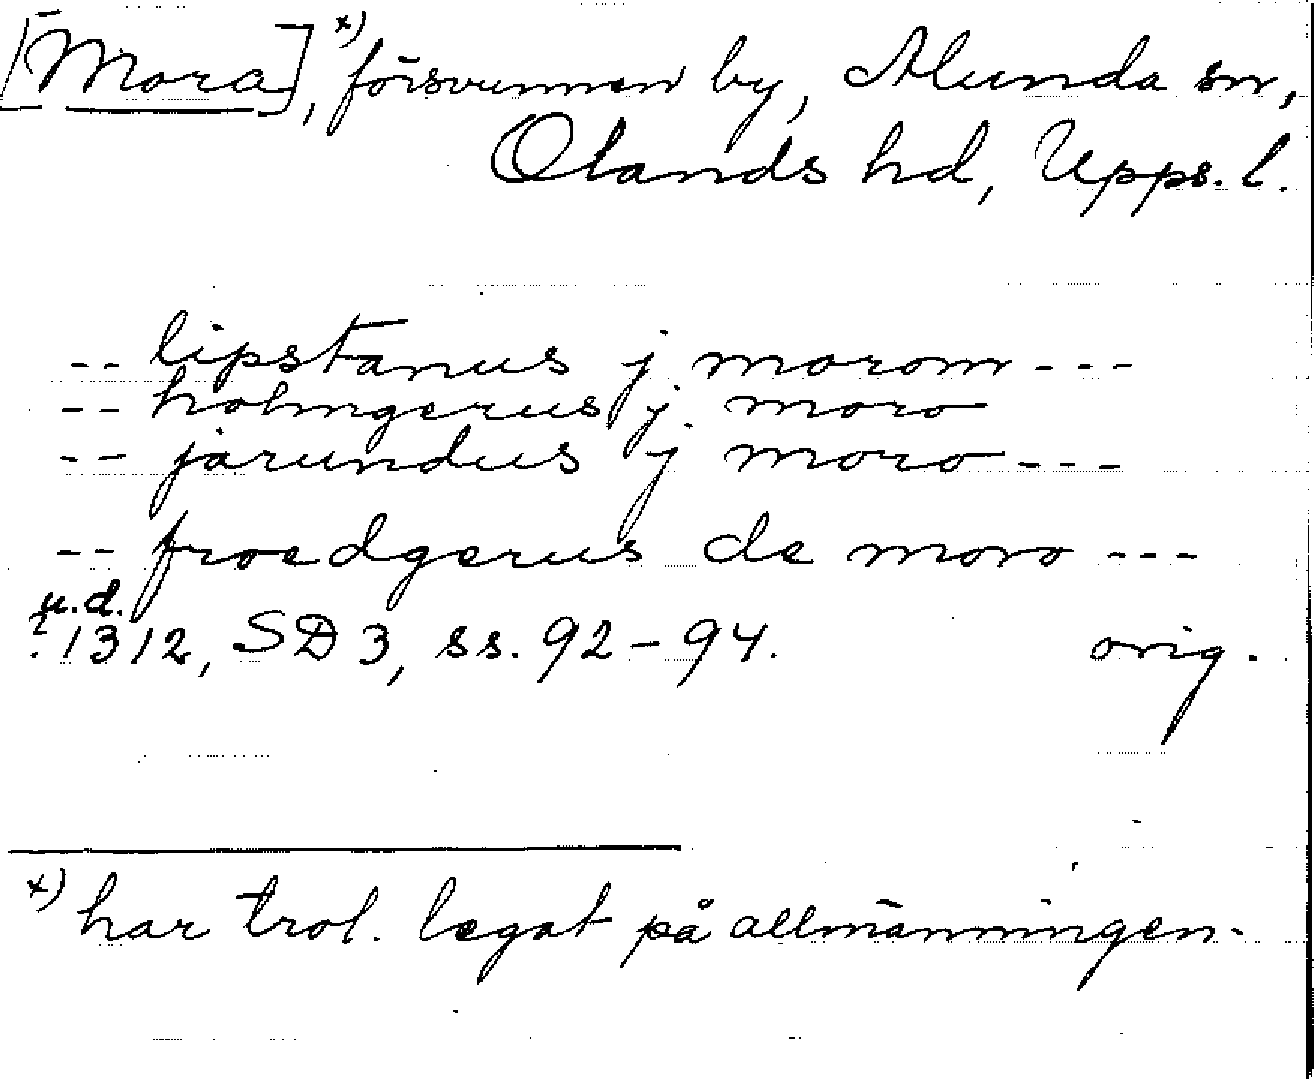 [Mora],x) försvunnen by, Alunda sn,
Olands hd, Upps. l.
-- lipstanus j morom ---
-- holmgerus j moro
-- jarundus j moro ---
-- froedgerus de moro ---
u.d.
? 1312, SD 3, ss. 92-94. orig.
x) har trol. legat på allmänningen.